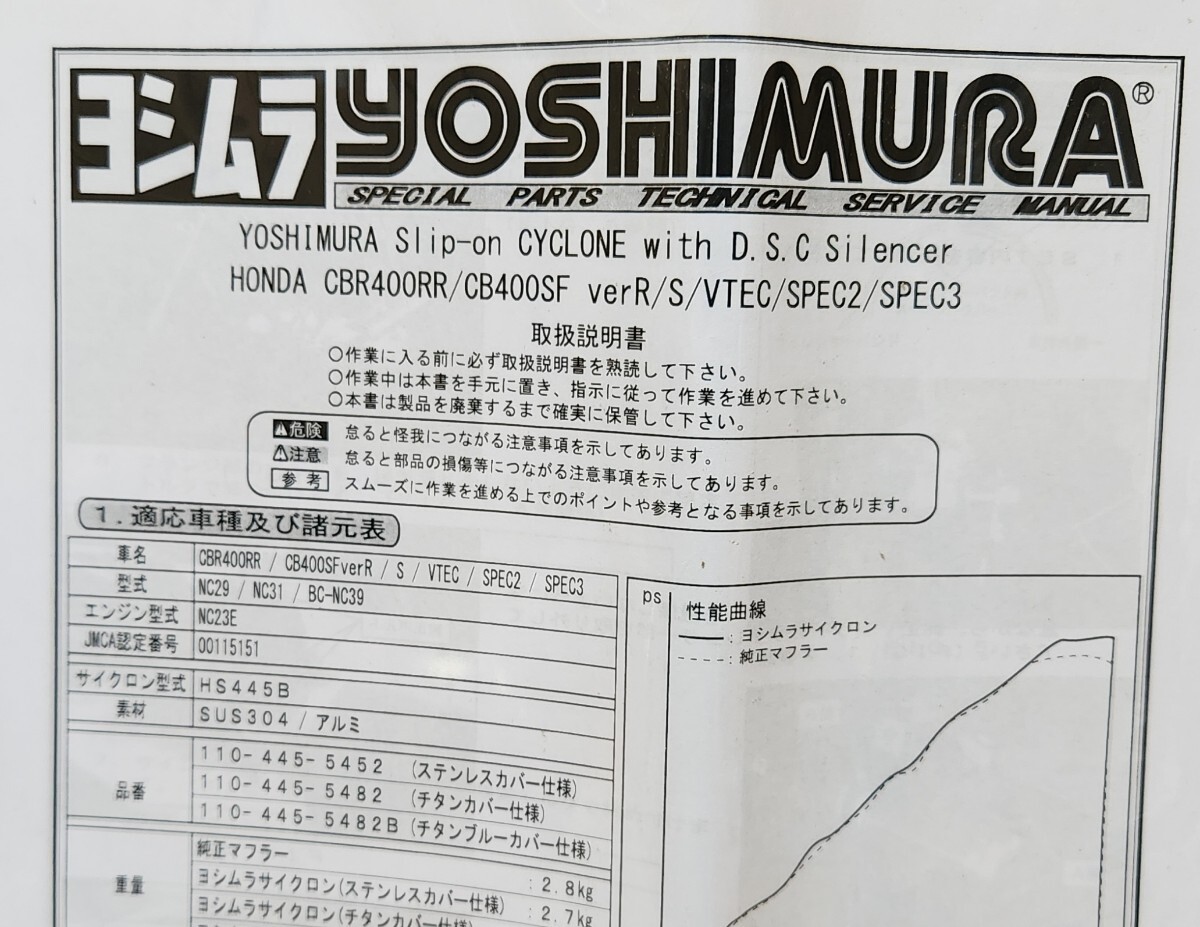 ヨシムラ YOSHIMURA®
SPECIAL PARTS TECHNICAL SERVICE MANUAL
YOSHIMURA Slip-on CYCLONE with D.S.C Silencer
HONDA CBR400RR/CB400SF verR/S/VTEC/SPEC2/SPEC3
取扱説明書
○作業に入る前に必ず取扱説明書を熟読して下さい。
○作業中は本書を手元に置き、指示に従って作業を進めて下さい。
○本書は製品を廃棄するまで確実に保管して下さい。
⚠危険 怠ると怪我につながる注意事項を示してあります。
⚠注意 怠ると部品の損傷等につながる注意事項を示してあります。
参考 スムーズに作業を進める上でのポイントや参考となる事項を示してあります。
1.適応車種及び諸元表
車名 CBR400RR / CB400SFverR / S / VTEC / SPEC2 / SPEC3
型式 NC29 / NC31 / BC-NC39
エンジン型式 NC23E
JMCA認定番号 00115151
サイクロン型式 HS445B
素材 SUS304 / アルミ
品番 110-445-5452 (ステンレスカバー仕様)
110-445-5482 (チタンカバー仕様)
110-445-5482B (チタンブルーカバー仕様)
重量 純正マフラー : 2.8kg
ヨシムラサイクロン(ステンレスカバー仕様) : 2.7kg
ヨシムラサイクロン(チタンカバー仕様)
ps
性能曲線
: ヨシムラサイクロン
: 純正マフラー